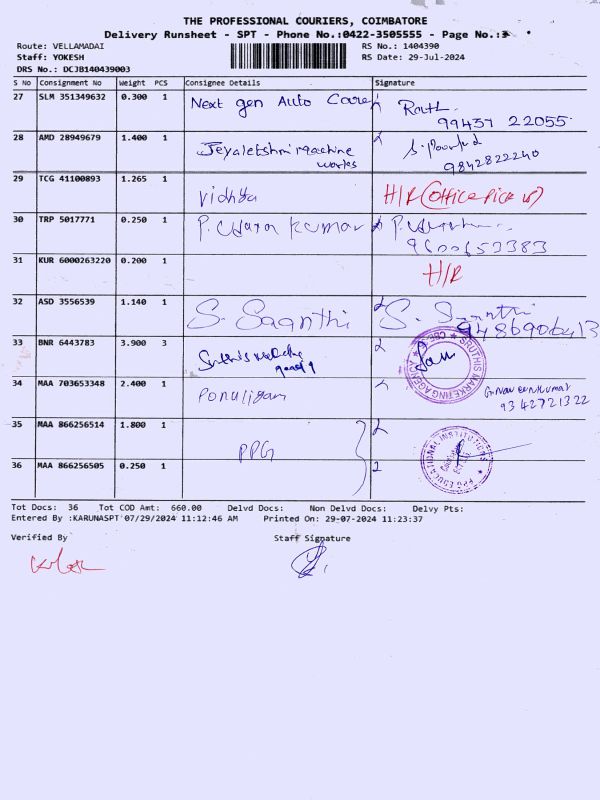 THE PROFESSIONAL COURIERS, COIMBATORE
Delivery Runsheet - SPT - Phone No.:0422-3505555 - Page No.:
Route: VELLAMADAI RS No.: 1404390
Staff: YOKESH RS Date: 29-Jul-2024
DRS No.: DCJB140439003
S No Consignment No Weight PCS Consignee Details Signature
27 SLM 351349632 0.300 1 Next gen Auto Care
99437 22055
28 AMD 28949679 1.400 1 Jeyaletshmi Machine works
9842822240
29 TCG 41100893 1.265 1 Vidhya H/R (Office Pick up)
30 TRP 5017771 0.250 1 P. Kumar
9600653383
31 KUR 6000263220 0.200 1 H/R
32 ASD 3556539 1.140 1 S. Saanthi S. Saanthi
9486906413
33 BNR 6443783 3.900 3 SRUTHIS MARKETING AGENCY ★ CBE ★
34 MAA 703653348 2.400 1 G. Naveenkumar
9342721322
35 MAA 866256514 1.800 1
PPG PPG EDUCATIONAL INSTITUTIONS
36 MAA 866256505 0.250 1
Tot Docs: 36 Tot COD Amt: 660.00 Delvd Docs: Non Delvd Docs: Delvy Pts:
Entered By :KARUNASPT 07/29/2024 11:12:46 AM Printed On: 29-07-2024 11:23:37
Verified By Staff Signature